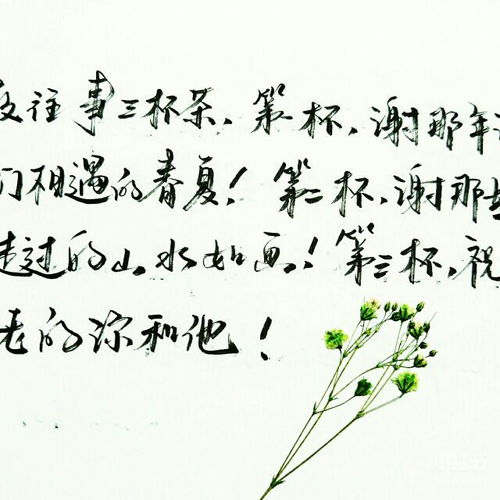 往事三杯茶,第一杯,谢那年
们相遇的春夏!第二杯,谢那些
走过的山水如画!第三杯,祝
老的你和他!